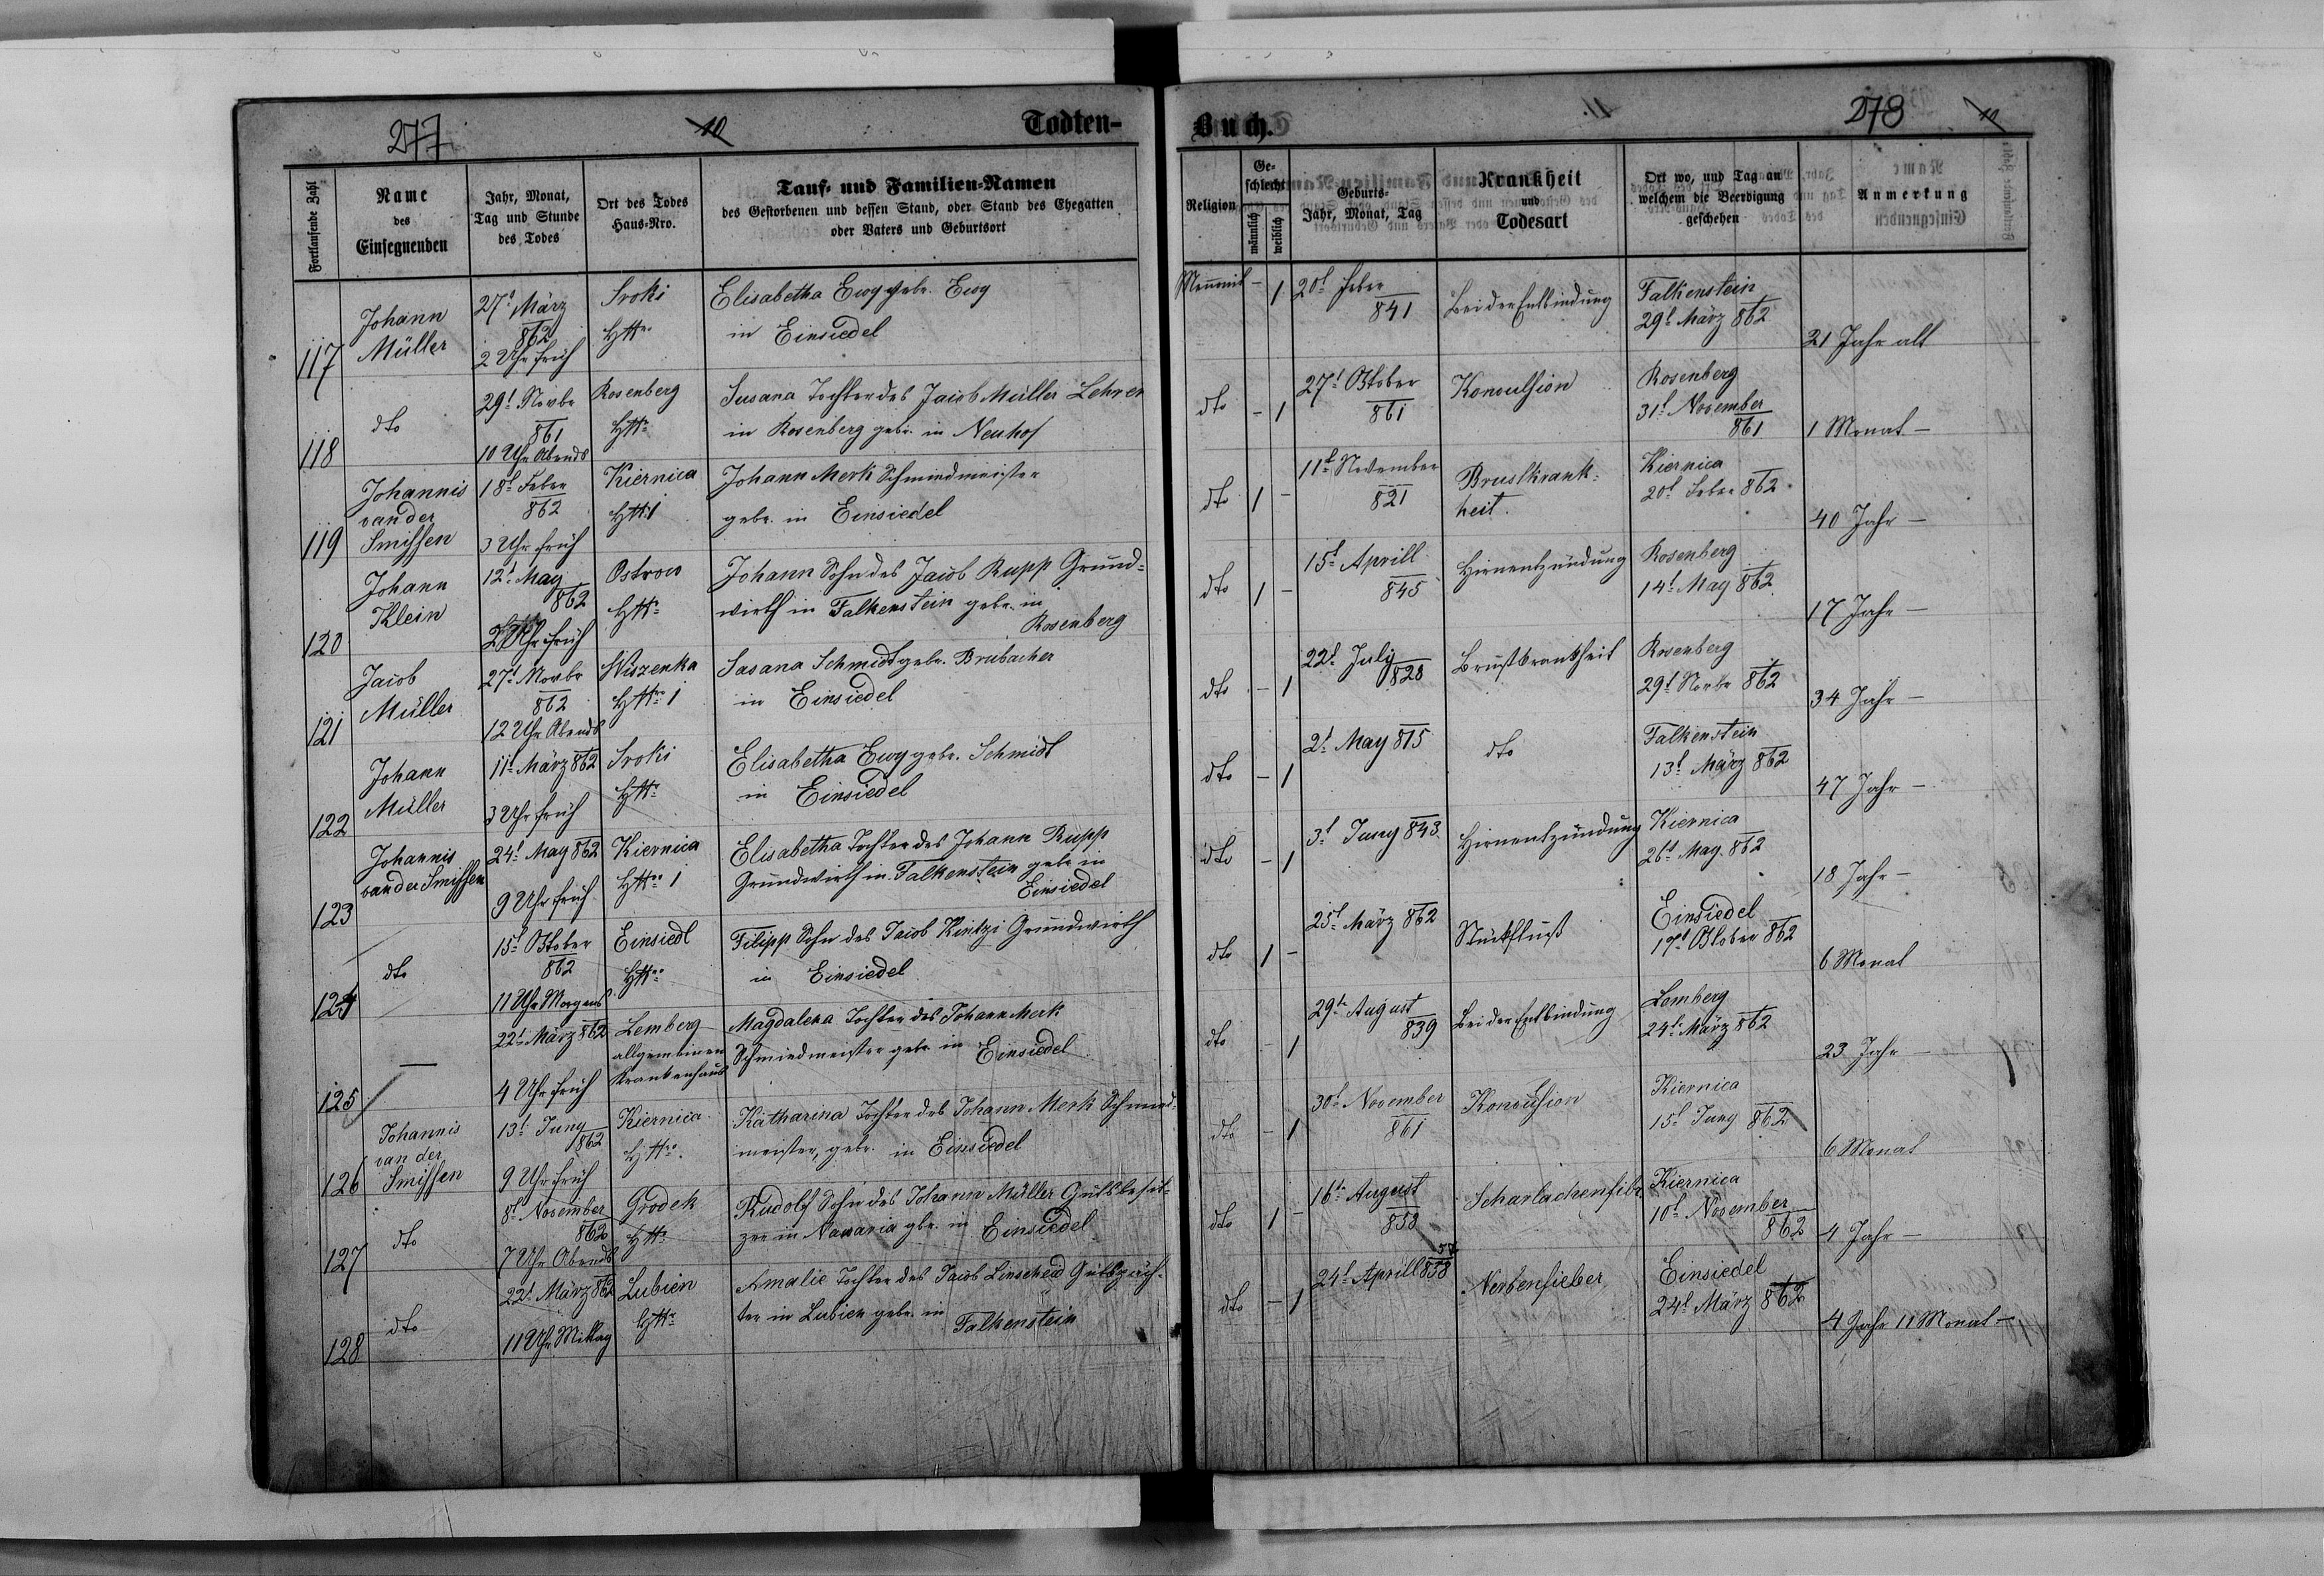 277
10
Todten-
Fortlaufende Zahl
Name
des
Einsegnenden
Jahr, Monat,
Tag und Stunde
des Todes
Ort des Todes
Haus-Nro.
Tauf- und Familien-Namen
des Gestorbenen und dessen Stand, oder Stand des Ehegatten
oder Vaters und Geburtsort
117
Johann
Müller
27t März
862
2 Uhr früh
Sroki
HNr
Elisabetha Ewy gebr. Ewy
in Einsiedel
118
dto
29t Novbr
861
10 Uhr Abends
Rosenberg
HNr
Susana Tochter des Jacob Müller Lehrer
in Rosenberg gebr. in Neuhof
119
Johannis
van der
Smissen
18t Feber
862
3 Uhr früh
Kiernica
HNr 1
Johann Merk Schmiedmeister
gebr. in Einsiedel
120
Johann
Klein
12t May
862
2 Uhr früh
Ostrow
HNr
Johann Sohn des Jacob Rupp Grund-
wirth in Falkenstein gebr. in
Rosenberg
121
Jacob
Müller
27t Novbr
862
12 Uhr Abends
Wiszenka
HNr 1
Sasana Schmidt gebr. Brubacher
in Einsiedel
122
Johann
Müller
11t März 862
3 Uhr früh
Sroki
HNr
Elisabetha Ewy gebr. Schmidt
in Einsiedel
123
Johannis
van der Smissen
24t May 862
9 Uhr früh
Kiernica
HNro 1
Elisabetha Tochter des Johann Rupp
Grundwirth in Falkenstein gebr in
Einsiedel
124
dto
15t Oktober
862
11 Uhr Morgens
Einsiedl
HNro
Filipp Sohn des Jacob Kintzi Grundwirth
in Einsiedel
125
—
22t März 862
4 Uhr früh
Lemberg
allgemeinen
Krankenhaus
Magdalena Tochter des Johann Merk
Schmiedmeister gebr in Einsiedel
126
Johannis
van der
Smissen
13t Juny
862
9 Uhr früh
Kiernica
HNro.
Katharina Tochter des Johann Merk Schmied-
meister, gebr. in Einsiedel
127
dto
8t November
862
7 Uhr Abends
Grodek
HNr
Rudolf Sohn des Johann Müller Gutsbesit-
zer in Nawaria gbr. in Einsiedel
128
dto
22t März 862
11 Uhr Mittag
Lubien
HNr
Amalie Tochter des Jacob Linscheid Gutspäch-
ter in Lubien gebr. in
Falkenstein
Buch.
278
10
Religion
Ge-
schlecht
männlich
weiblich
Geburts-
Jahr, Monat, Tag
Krankheit
und
Todesart
Ort wo, und Tag an
welchem die Beerdigung
geschehen
Anmerkung
Menonit - 1
20t Feber
841
Bei der Entbindung
Falkenstein
29t März 862
21 Jahr alt
dto - 1
27t Oktober
861
Konvulsion
Rosenberg
31t November
861
1 Monat —
dto 1 -
11t November
821
Brustkrank-
heit.
Kiernica
20t Feber 862
40 Jahr —
dto 1 -
15t Aprill
845
Hirnentzündung
Rosenberg
14t May 862
17 Jahr —
dto - 1
22t July
828
Brustkrankheit
Rosenberg
29t Novbr 862
34 Jahr —
dto - 1
2t May 815
dto
Falkenstein
13t März 862
47 Jahr —
dto - 1
3t Juny 843
Hirnentzündung
Kiernica
26t May 862
18 Jahr —
dto 1 -
25t März 862
Stückfluß
Einsiedel
17t Oktober 862
6 Monat
dto - 1
29t August
839
Bei der Entbindung
Lemberg
24t März 862
23 Jahr —
dto - 1
30t November
861
Konvulsion
Kiernica
15t Juny 862
6 Monat
dto 1 -
16t August
858
Scharlachenfibr
Kiernica
10t November
862
4 Jahr —
dto - 1
24t Aprill 858
57
Nervenfieber
Einsiedel
24t März 862
4 Jahr 11 Monat —